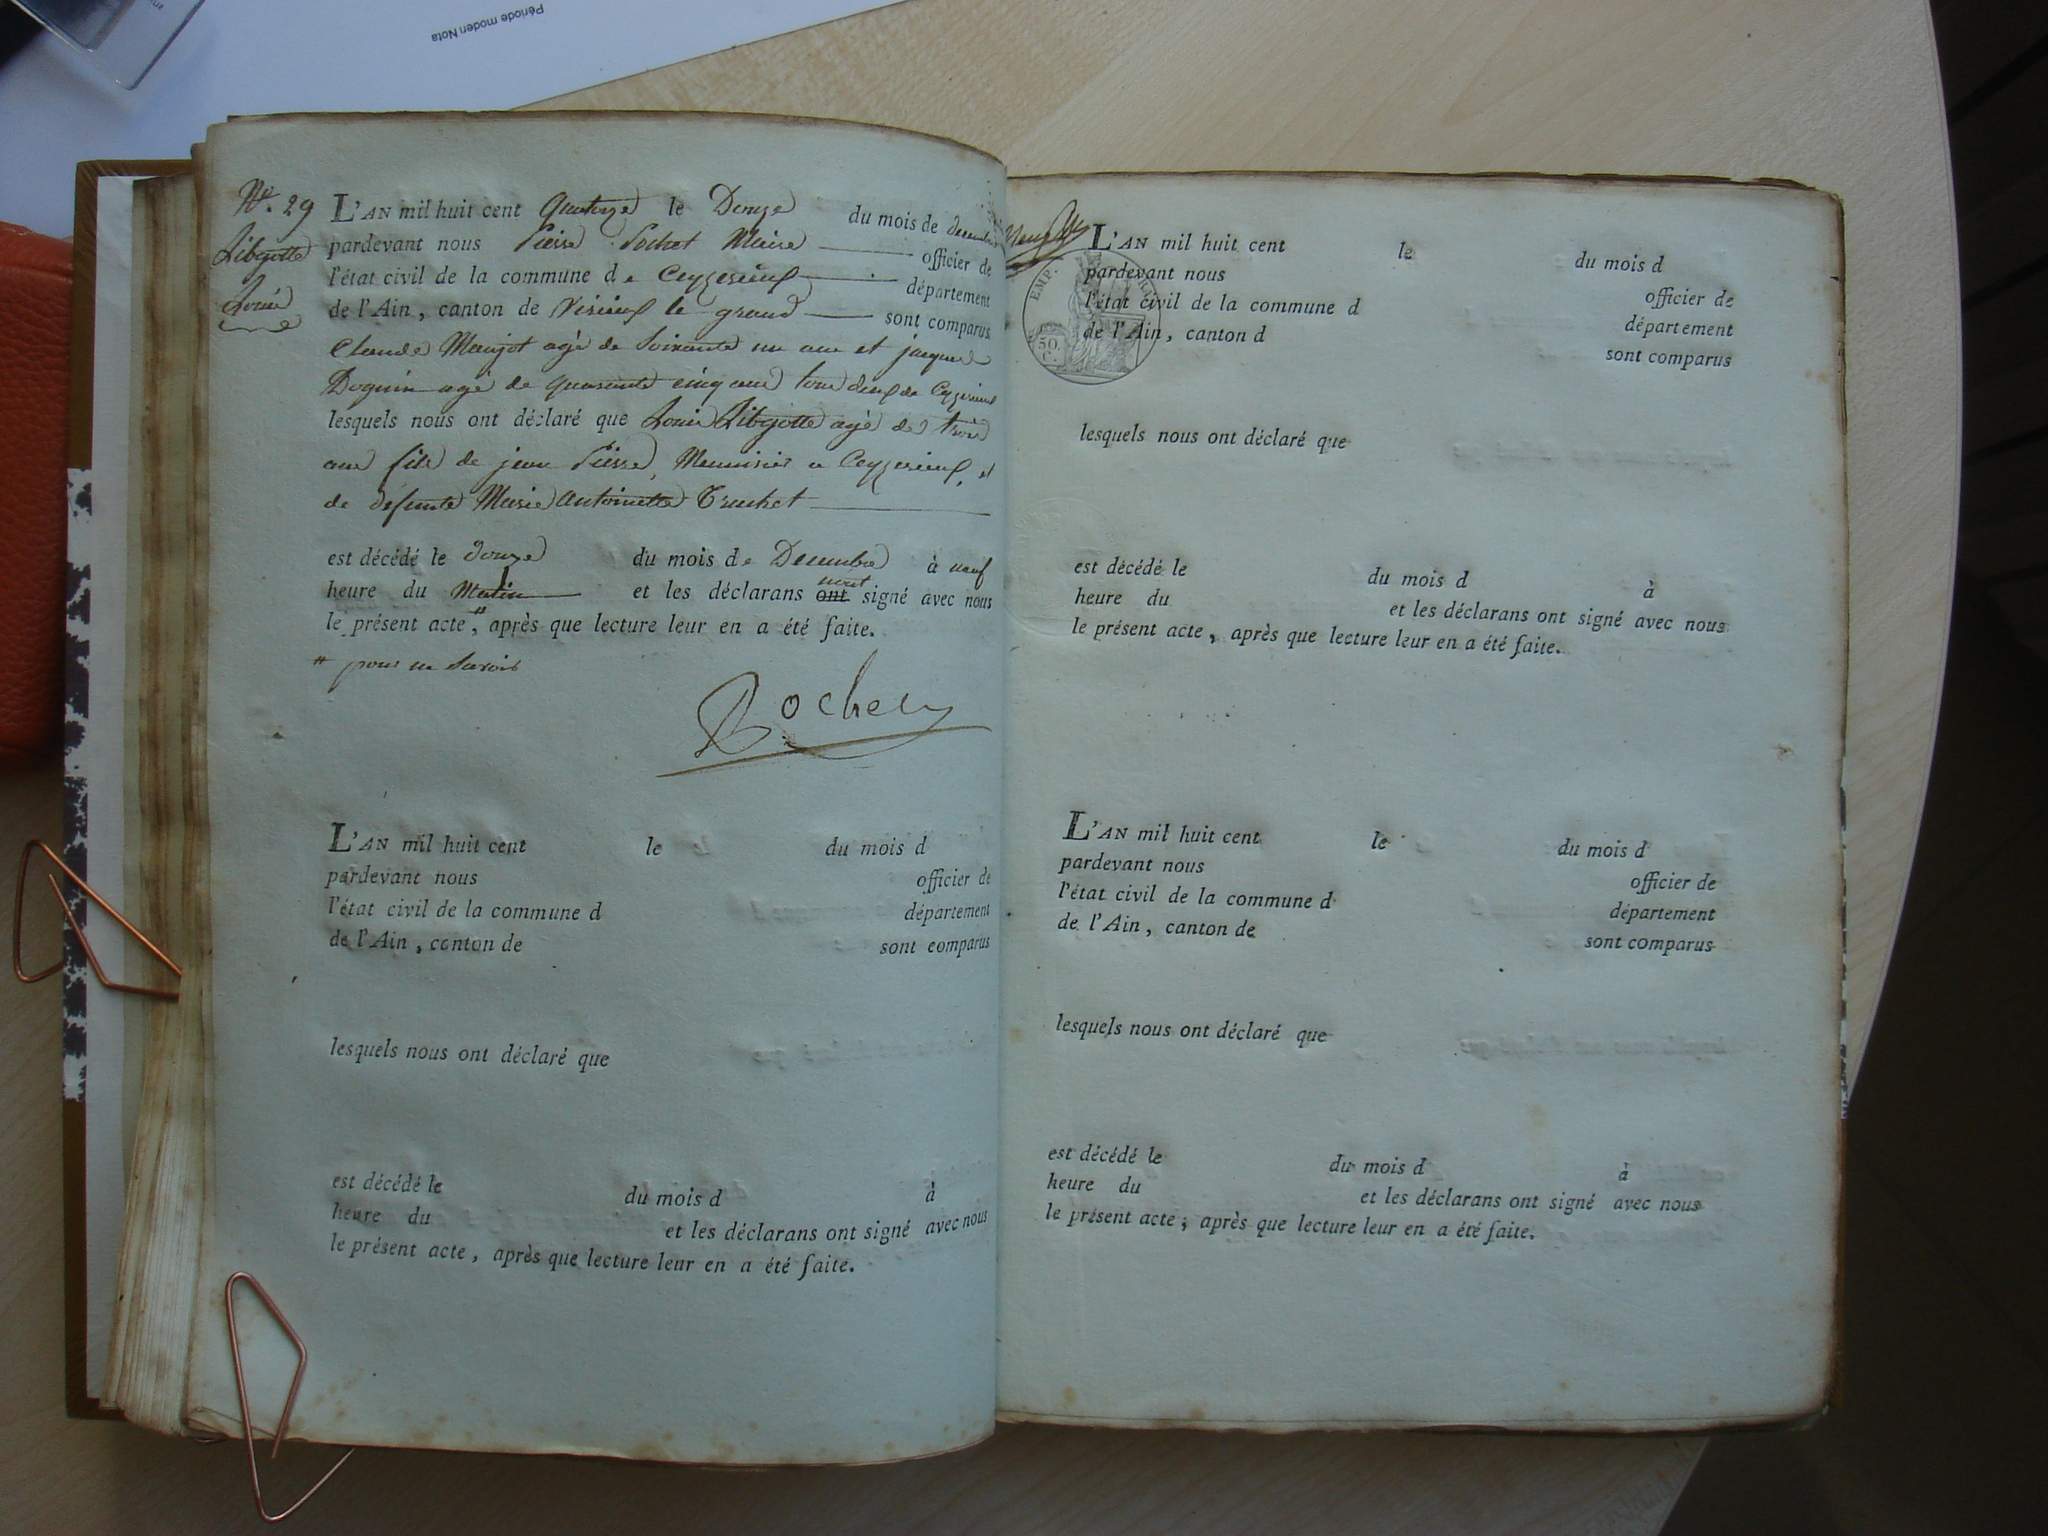 Période moden Nota
N°. 29
Libjotte
Louis
L'AN mil huit cent quatorze le Douze du mois de decembre
pardevant nous Pierre Rochet Maire officier de
l'état civil de la commune de Ceyzerieux département
de l'Ain, canton de Virieux le grand sont comparus
Claude Maujot agé de Soixante un ans et jacques
Doguin agé de quarante cinq ans tous deux de Ceyzerieux
lesquels nous ont déclaré que Louis Libjotte agé de trois
ans fils de jean Pierre, Menuisier a Ceyzerieux, et
de défunte Marie Antoinette Truchet
est décédé le douze du mois de Decembre à neuf
heure du Matin et les déclarans ont n'ont signé avec nous
le présent acte, # après que lecture leur en a été faite.
# pour ne savoir
Rochet
L'AN mil huit cent le du mois d
pardevant nous officier de
l'état civil de la commune d département
de l'Ain, canton de sont comparus
lesquels nous ont déclaré que
est décédé le du mois d à
heure du et les déclarans ont signé avec nous
le présent acte, après que lecture leur en a été faite.
EMP.
50.
C.
L'AN mil huit cent le du mois d
pardevant nous officier de
l'état civil de la commune d département
de l'Ain, canton d sont comparus
lesquels nous ont déclaré que
est décédé le du mois d à
heure du et les déclarans ont signé avec nous
le présent acte, après que lecture leur en a été faite.
L'AN mil huit cent le du mois d
pardevant nous officier de
l'état civil de la commune d département
de l'Ain, canton de sont comparus
lesquels nous ont déclaré que
est décédé le du mois d à
heure du et les déclarans ont signé avec nous
le présent acte, après que lecture leur en a été faite.